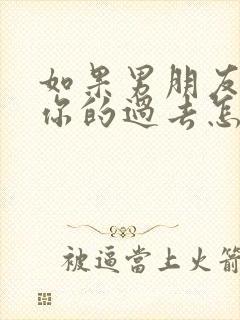 如果男朋友
你的過去怎
被逼當上火箭